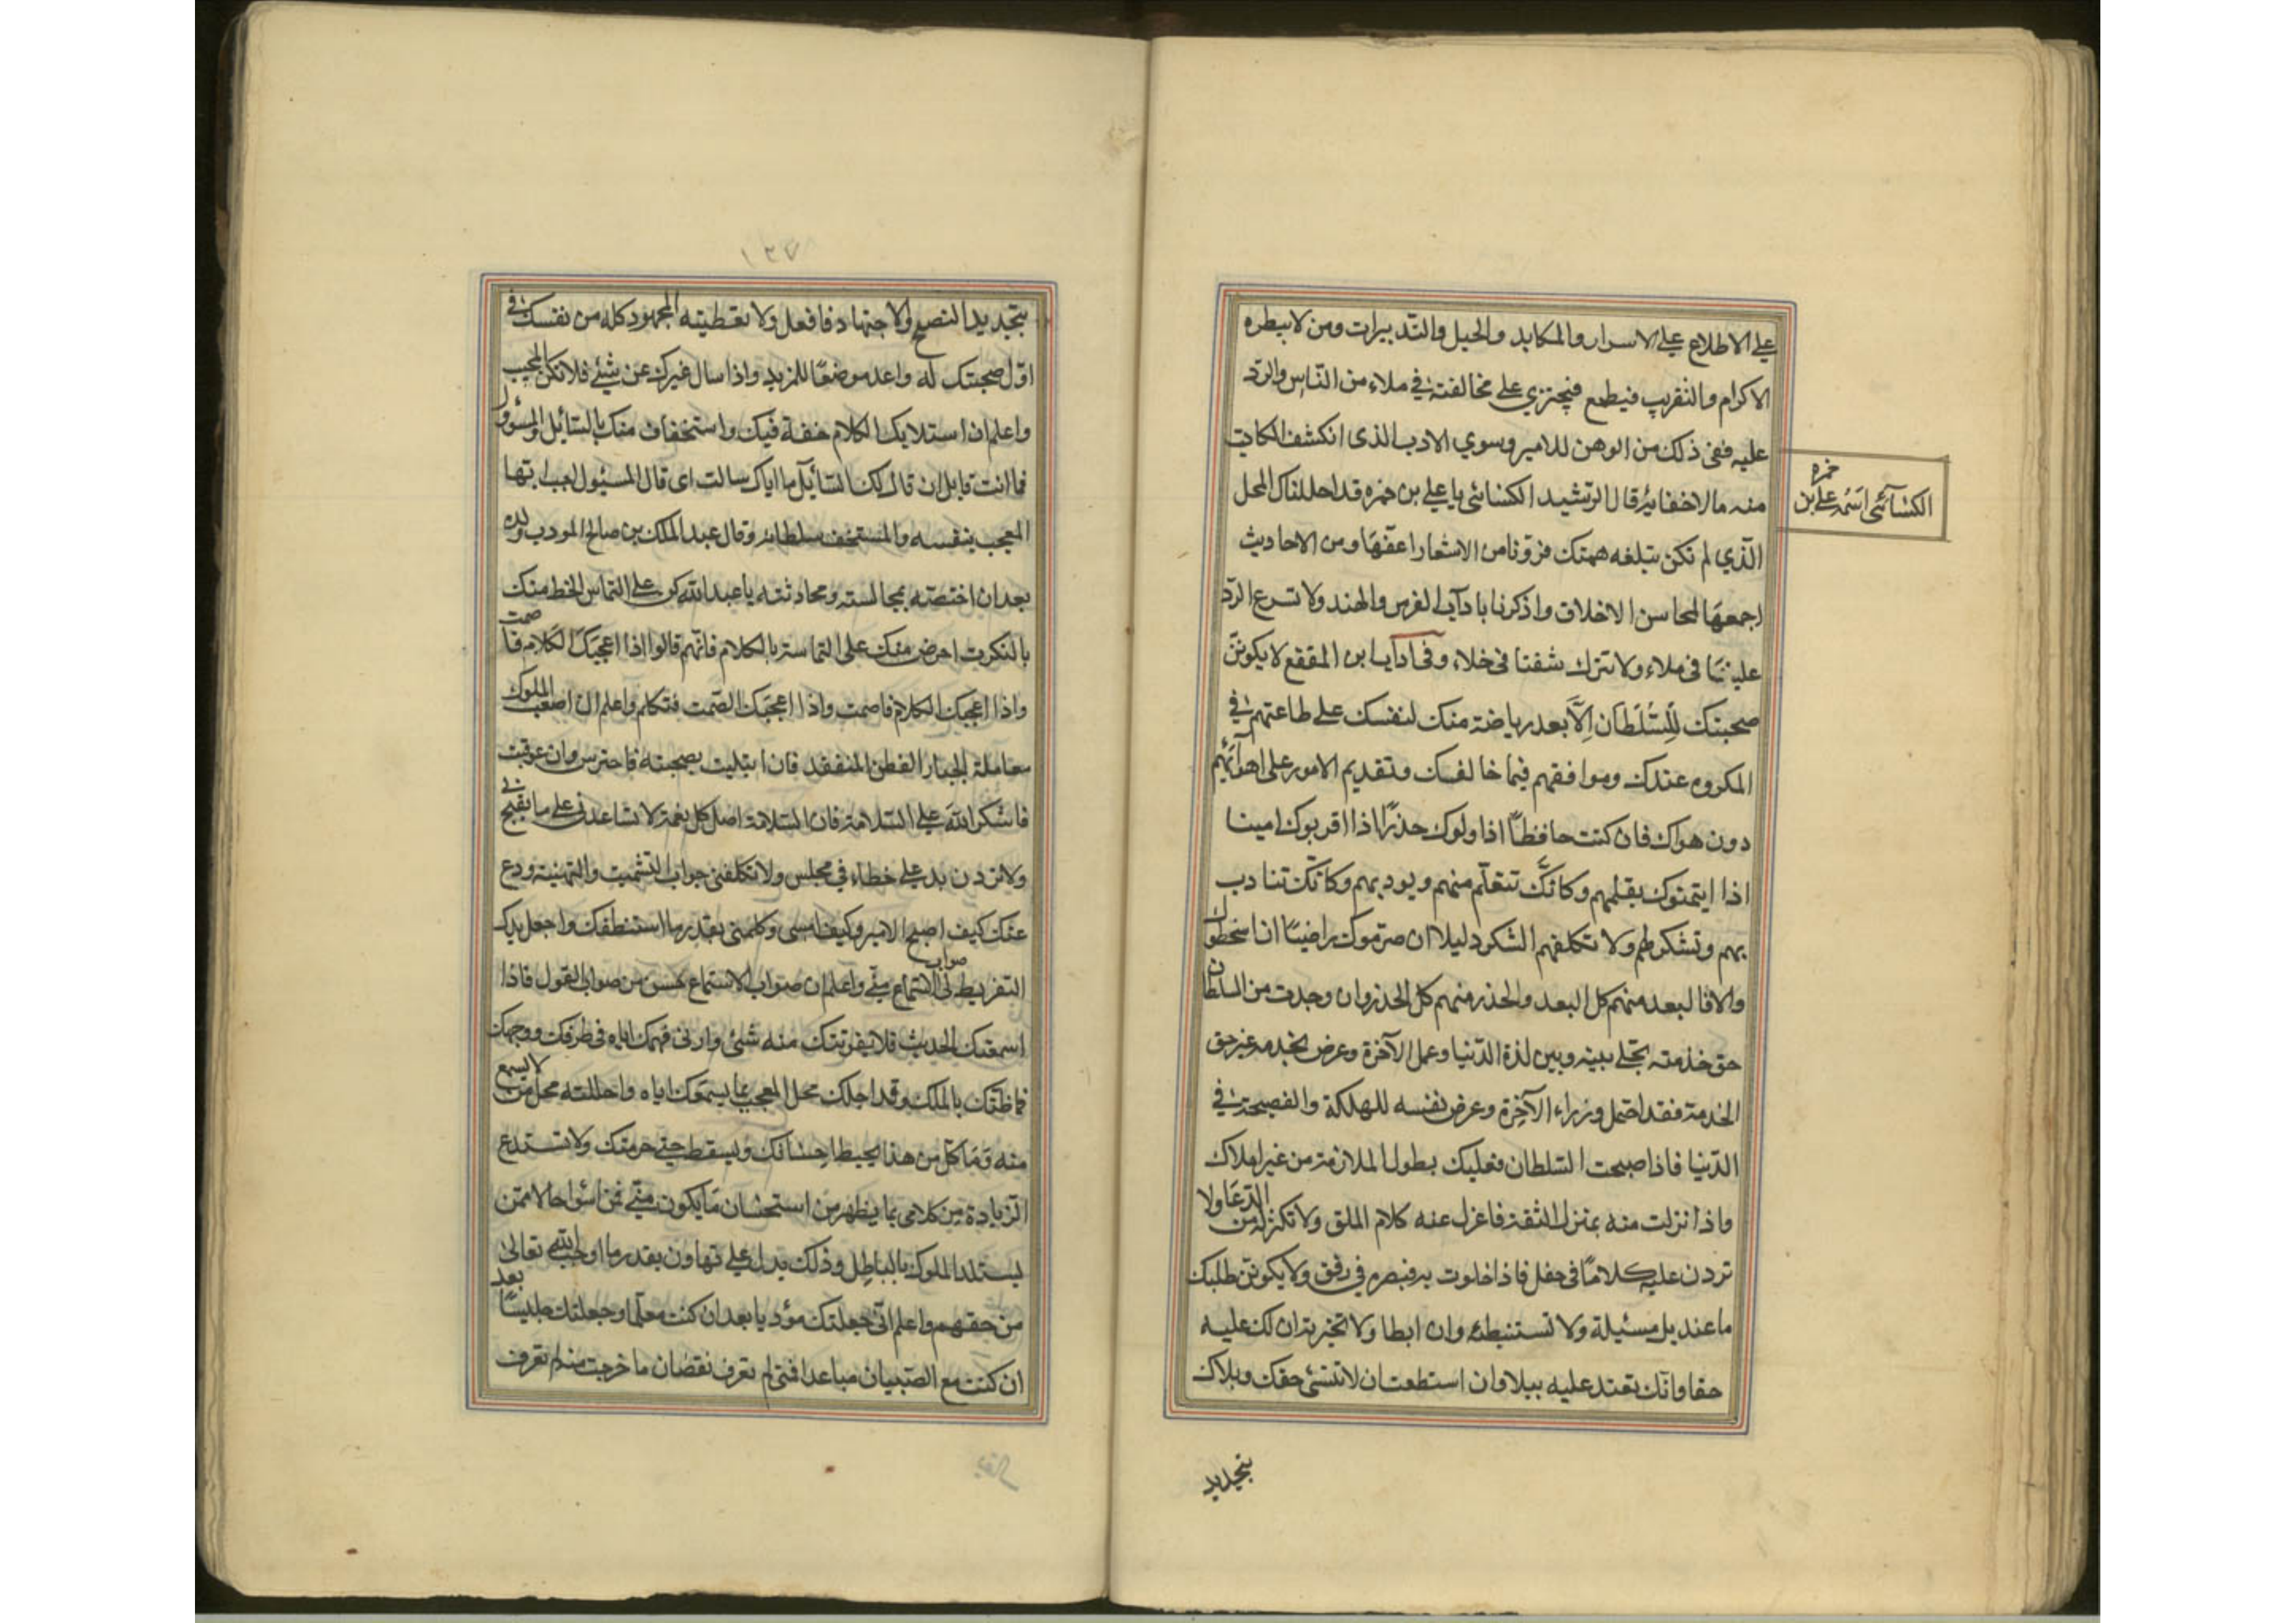 على الاطلاع على الاسرار والمكايد والحيل والتدبيرات ومن لا يبطره
الاكرام والتقريب فيطمع فيجتزي على مخالفته في ملاء من الناس والرّد
عليه ففى ذلك من الوهن للامير وسوي الادب الذى انكشف الكاتب
منه مالا خفا به قال الرشيد الكسائي يا علي بن حمزه قد احللناك المحل
الّذي لم تكن تبلغه همتك فزونا من الاشعار اعفها ومن الاحاديث
اجمعها لمحاسن الاخلاق واذكرنا باداب الفرس والهند ولا تسرع الرّد
علينا فى ملاء ولا تترك شفتا فى خلاء وفى آداب ابن المقفع لا يكوننّ
صحبتك للسّلطان إلّا بعد رياضة منك لنفسك على طاعتهم في
المكروه عندك وموافقهم فيما خالفك وتقديم الامور على اهوآئهم
دون هواك فان كنت حافظاً اذا ولوك حذرًا اذا اقربوك امينا
اذا ايتمنوك بقلهم وكانّك تتعلّم منهم ويوديهم وكانّك تتادب
بهم وتشكرهم ولا تكلفهم الشكر دليلا ان صرموك راضيًا ان اسخطوك
والا فالبعد منهم كل البعد والحذر منهم كل الحذر وان وجدت من السلطان
حق خدمته يخلى بينه وبين لذة الدّنيا وعمل الآخرة وعرض بخدمه غير حق
الخدمة فقد احتمل وزراء الآخرة وعرض نفسه للهلكة والفصيحة في
الدّنيا فاذا صحبت السّلطان فعليك بطول الملازمة من غير املاك
واذا نزلت منه بمنزل الثقة فاعزل عنه كلام الملق ولا تكثر له من الدّعا ولا
تردن عليه كلامًا فى حفل فاذا خلوت به فبصره في رفق ولا يكوننّ طلبك
ما عند بل مسئيلة ولا تستبطئه وان ابطا ولا تخبر به ان لك عليه
حقا وانّك تعتد عليه ببلا وان استطعت ان لا تنسئ حقك وبلاك
الكسآئي اسمه علي بن حمزه
بتجديد
١٣٧
بتجديد النصح والاجتهاد فافعل ولا تعطينه المجهود كله من نفسك في
اوّل صحبتك له واعد موضعًا للمزيد واذا سال غيرك عن شئ فلا تكن المجيب
واعلم ان استلابك الكلام خفة فيك واستخفاف منك بالسّايل والمسؤول
فما انت قايل ان قال لك السّايل ما اياك سالت اى قال المسئول اجب ايها
المعجب بنفسه والمستخف بسلطانه وقال عبد الملك بن صالح المودب ولده
بعد ان اختصه بمجالسته ومحادثته يا عبد الله كن على التماس الخط منك
بالسكوت احرض منك على التماسه بالكلام فانّهم قالوا اذا اعجبك الكلام فاصمت
واذا اعجبك الكلام فاصمت واذا اعجبك الصّمت فتكلم واعلم ان اصعب الملوك
معاملة الجبار الفطن المتفقد فان ابتليت بصحبته فاحترس وان عوفيت
فاشكر الله على السّلامة فان السّلامة اصل كل نعمة لا تساعدنى على ما يقبح
ولا تردن بد على خطاء في مجلس ولا تكلفنى جواب التشميت والتهنية ودع
عنك كيف اصبح الامير وكيف امسى وكلمنى بقدر ما استنطقك واجعل بدك
التقريط لى صواب الاستماع منّي واعلم ان صواب الاستماع احسن من صواب القول فاذا
اسمعتك الحديث فلا يفوتنك منه شئ وارنى فهمك اياه فى طرفك ووجهك
فما ظنّك بالملك وقد احلك محل المعجب بما يسمعك اياه واحللته محل من لا يسمع
منه وما كل من هذا يحبط احسانك ويسقط حق حرمتك ولا تستدع
الزيادة من كلامى بما يظهر من استحسان ما يكون منّي فمن اسؤا حالا ممّن
يستلد الملوك بالباطل وذلك يدل على تهاون بقدر ما اوجب الله تعالى
من حقهم واعلم انّي جعلتك مؤدبا بعد ان كنت معلما وجعلتك جليسًا بعد
ان كنت مع الصّبيان مباعدا فمتى لم تعرف نقصان ما خرجت منه لم تعرف